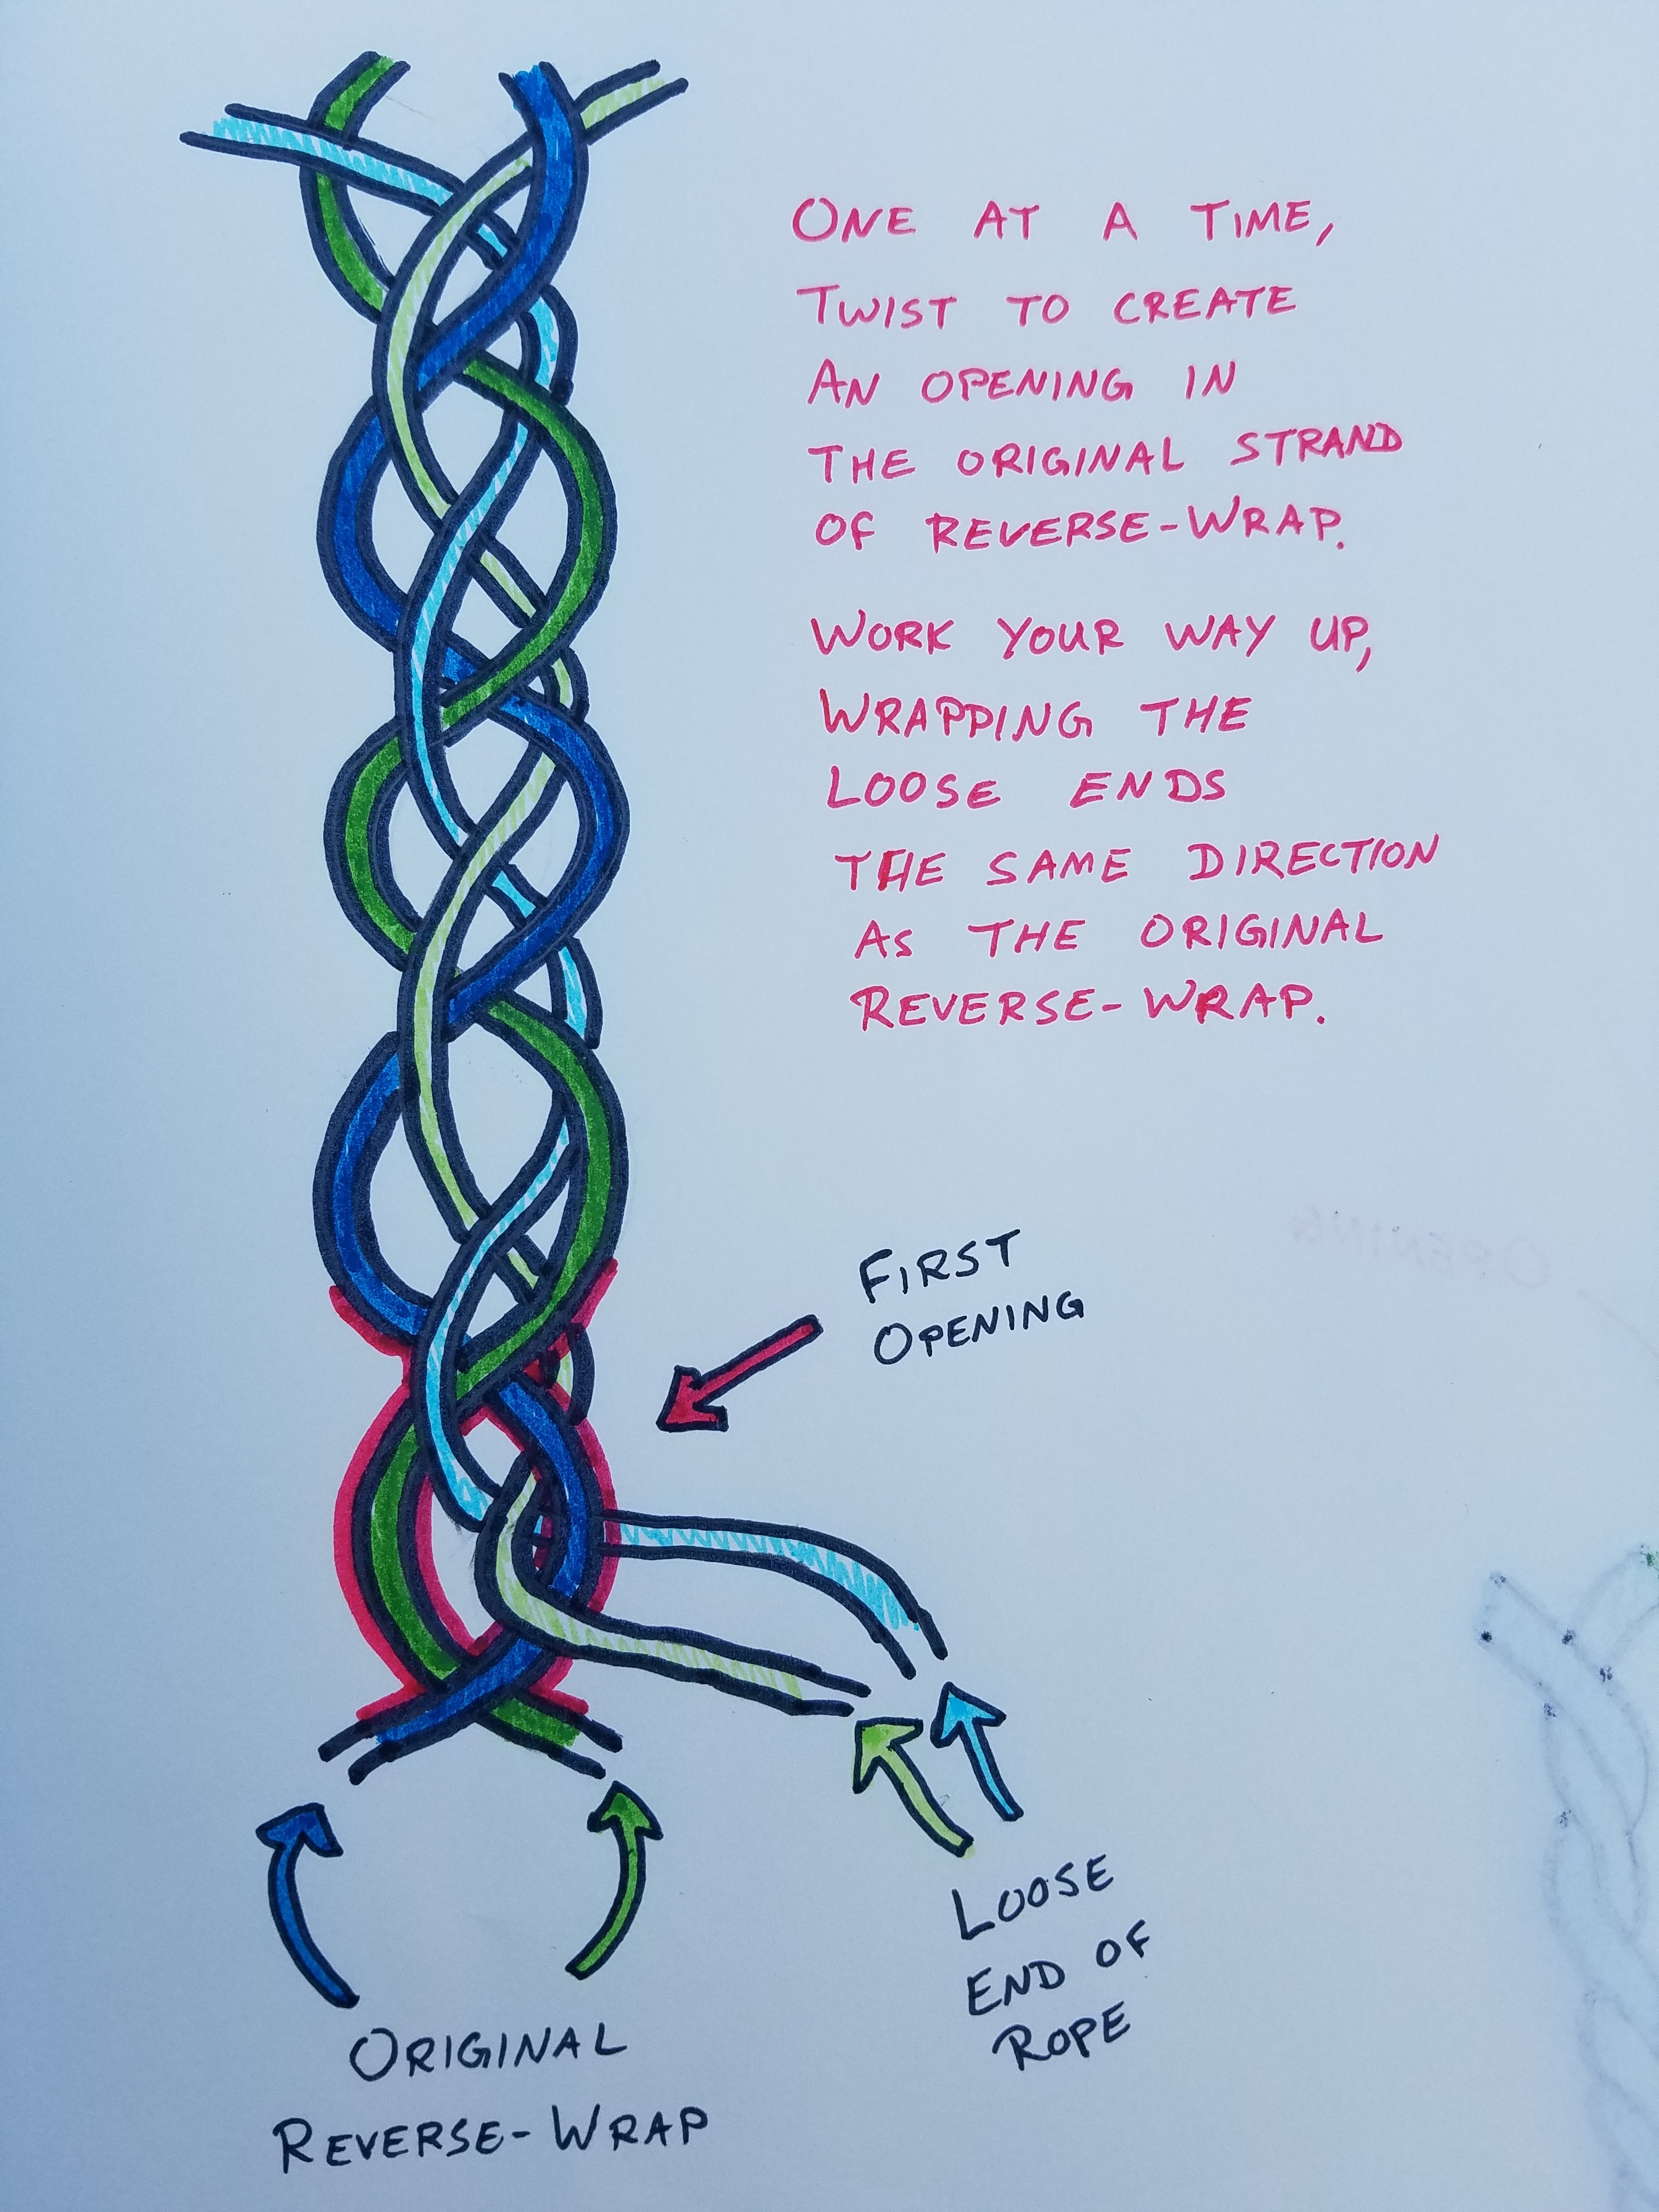 ONE AT A TIME,
TWIST TO CREATE
AN OPENING IN
THE ORIGINAL STRAND
OF REVERSE-WRAP.
WORK YOUR WAY UP,
WRAPPING THE
LOOSE ENDS
THE SAME DIRECTION
AS THE ORIGINAL
REVERSE-WRAP.
FIRST
OPENING
LOOSE
END OF
ROPE
ORIGINAL
REVERSE-WRAP